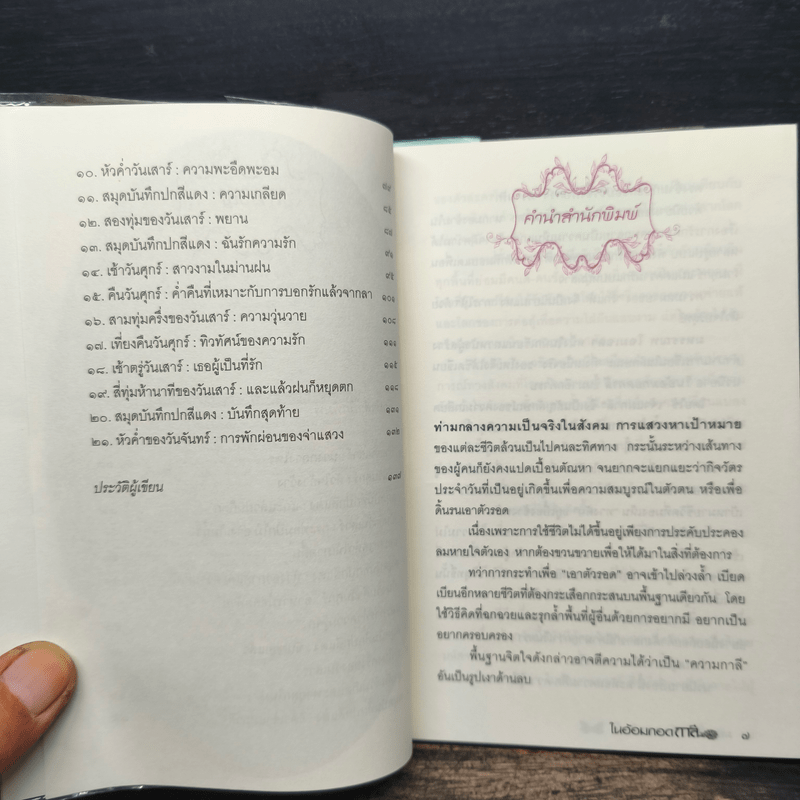 ๑๐. หัวค่ำวันเสาร์ : ความพะอืดพะอม
๗๗
๑๑. สมุดบันทึกปกสีแดง : ความเกลียด
๘๕
๑๒. สองทุ่มของวันเสาร์ : พยาน
๘๗
๑๓. สมุดบันทึกปกสีแดง : ฉันรักความรัก
๙๑
๑๔. เช้าวันศุกร์ : สาวงามในม่านฝน
๙๕
๑๕. คืนวันศุกร์ : ค่ำคืนที่เหมาะกับการบอกรักแล้วจากลา
๑๐๑
๑๖. สามทุ่มครึ่งของวันเสาร์ : ความวุ่นวาย
๑๐๘
๑๗. เที่ยงคืนวันศุกร์ : ทิวทัศน์ของความรัก
๑๑๑
๑๘. เช้าตรู่วันเสาร์ : เธอผู้เป็นที่รัก
๑๑๕
๑๙. สี่ทุ่มห้านาทีของวันเสาร์ : และแล้วฝนก็หยุดตก
๑๑๘
๒๐. สมุดบันทึกปกสีแดง : บันทึกสุดท้าย
๑๓๑
๒๑. หัวค่ำของวันจันทร์ : การพักผ่อนของจ่าแสวง
๑๓๒
ประวัติผู้เขียน
คำนำสำนักพิมพ์
ท่ามกลางความเป็นจริงในสังคม การแสวงหาเป้าหมาย
ของแต่ละชีวิตล้วนเป็นไปคนละทิศทาง กระนั้นระหว่างเส้นทาง
ของผู้คนก็ยังคงแปดเปื้อนตัณหา จนยากจะแยกแยะว่ากิจวัตร
ประจำวันที่เป็นอยู่เกิดขึ้นเพื่อความสมบูรณ์ในตัวตน หรือเพื่อ
ดิ้นรนเอาตัวรอด
เนื่องเพราะการใช้ชีวิตไม่ได้ขึ้นอยู่เพียงการประคับประคอง
ลมหายใจตัวเอง หากต้องขวนขวายเพื่อให้ได้มาในสิ่งที่ต้องการ
ทว่าการกระทำเพื่อ "เอาตัวรอด" อาจเข้าไปล่วงล้ำ เบียด
เบียนอีกหลายชีวิตที่ต้องกระเสือกกระสนบนพื้นฐานเดียวกัน โดย
ใช้วิธีคิดที่ฉกฉวยและรุกล้ำพื้นที่ผู้อื่นด้วยการอยากมี อยากเป็น
อยากครอบครอง
พื้นฐานจิตใจดังกล่าวอาจตีความได้ว่าเป็น "ความกาลี"
อันเป็นรูปเงาด้านลบ
ในอ้อมกอดกาลี ๗